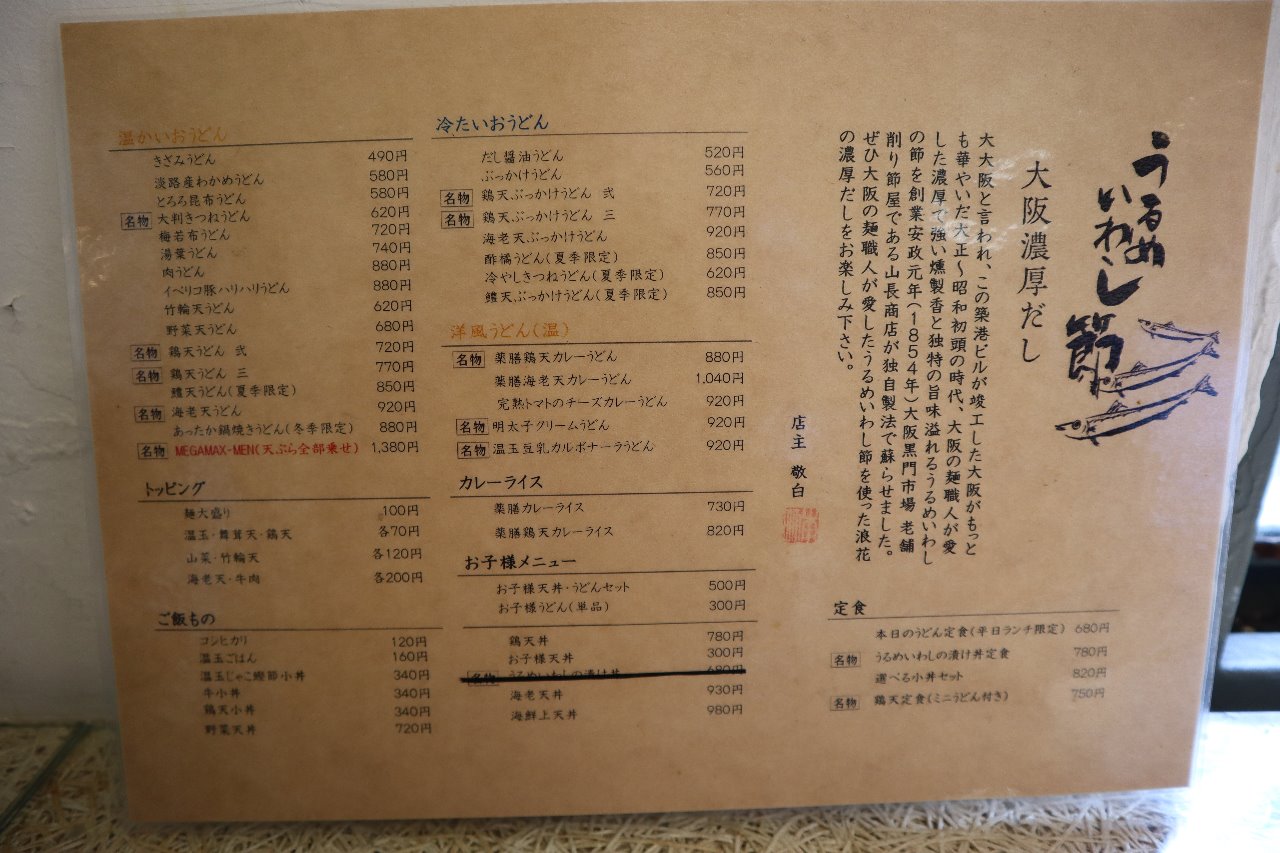 うるめ
いわし
節
大阪濃厚だし
大大阪と言われ、この築港ビルが竣工した大阪がもっと
も華やいだ大正〜昭和初頭の時代、大阪の麺職人が愛
した濃厚で強い燻製香と独特の旨味溢れるうるめいわし
の節を創業安政元年(1854年)大阪黒門市場 老舗
削り節屋である山長商店が独自製法で蘇らせました。
ぜひ大阪の麺職人が愛したうるめいわし節を使った浪花
の濃厚だしをお楽しみ下さい。
店主 敬白
温かいおうどん
きざみうどん 490円
淡路産わかめうどん 580円
とろろ昆布うどん 580円
名物 大判きつねうどん 620円
梅若布うどん 720円
湯葉うどん 740円
肉うどん 880円
イベリコ豚ハリハリうどん 880円
竹輪天うどん 620円
野菜天うどん 680円
名物 鶏天うどん 弐 720円
名物 鶏天うどん 三 770円
鱧天うどん(夏季限定) 850円
名物 海老天うどん 920円
あったか鍋焼きうどん(冬季限定) 880円
名物 MEGAMAX-MEN(天ぷら全部乗せ) 1,380円
トッピング
麺大盛り 100円
温玉・舞茸天・鶏天 各70円
山菜・竹輪天 各120円
海老天・牛肉 各200円
ご飯もの
コシヒカリ 120円
温玉ごはん 160円
温玉じゃこ鰹節小丼 340円
牛小丼 340円
鶏天小丼 340円
野菜天丼 720円
冷たいおうどん
だし醤油うどん 520円
ぶっかけうどん 560円
名物 鶏天ぶっかけうどん 弐 720円
名物 鶏天ぶっかけうどん 三 770円
海老天ぶっかけうどん 920円
酢橘うどん(夏季限定) 850円
冷やしきつねうどん(夏季限定) 620円
鱧天ぶっかけうどん(夏季限定) 850円
洋風うどん(温)
名物 薬膳鶏天カレーうどん 880円
薬膳海老天カレーうどん 1,040円
完熟トマトのチーズカレーうどん 920円
名物 明太子クリームうどん 920円
名物 温玉豆乳カルボナーラうどん 920円
カレーライス
薬膳カレーライス 730円
薬膳鶏天カレーライス 820円
お子様メニュー
お子様天丼・うどんセット 500円
お子様うどん(単品) 300円
鶏天丼 780円
お子様天丼 300円
名物 うるめいわしの漬け丼 680円
海老天丼 930円
海鮮上天丼 980円
定食
本日のうどん定食(平日ランチ限定) 680円
名物 うるめいわしの漬け丼定食 780円
選べる小丼セット 820円
名物 鶏天定食(ミニうどん付き) 750円